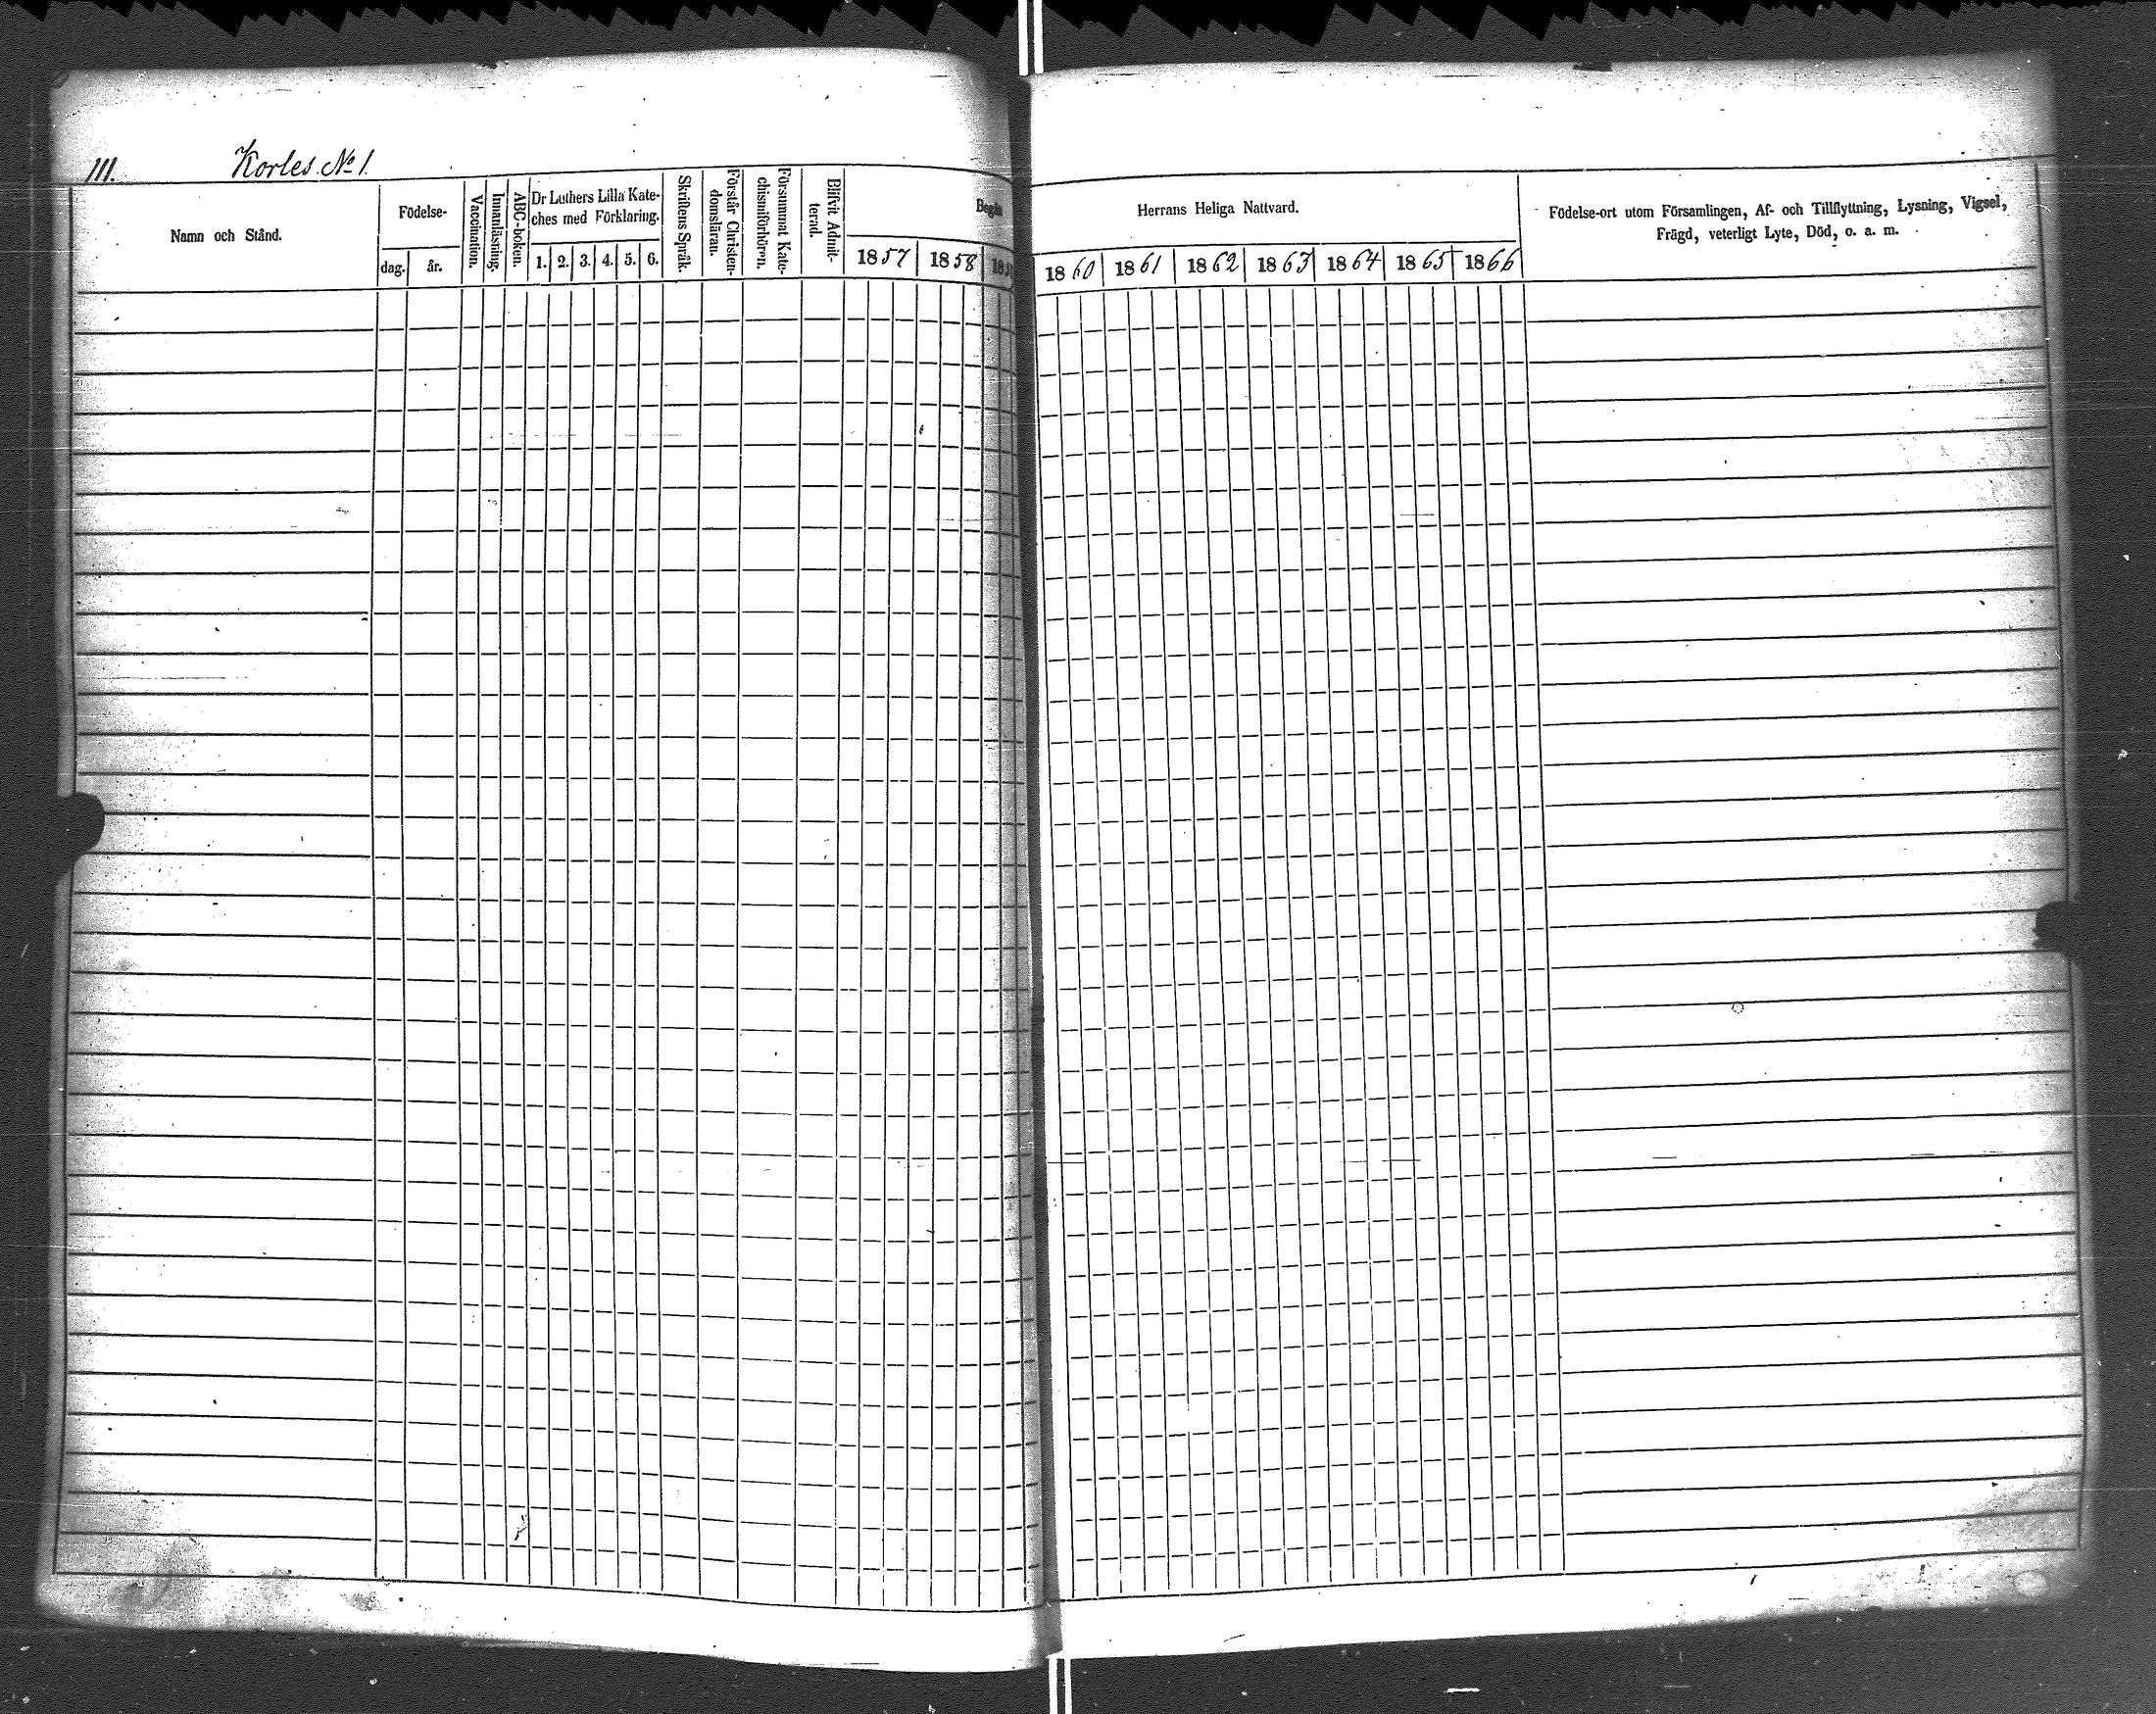 111. Korles. No 1.
Namn och Stånd.
Födelse-
dag. år.
Vaccination.
Innanläsning.
ABC-boken.
Dr Luthers Lilla Kate-
ches med Förklaring.
1. 2. 3. 4. 5. 6.
Skriftens Språk.
Förstår Christen-
domsläran.
Försummat Kate-
chismiförhören.
Blifvit Admit-
terad.
Begått
1857 1858
Herrans Heliga Nattvard.
1860 1861 1862 1863 1864 1865 1866
Födelse-ort utom Församlingen, Af- och Tillflyttning, Lysning, Vigsel,
Frägd, veterligt Lyte, Död, o. a. m.